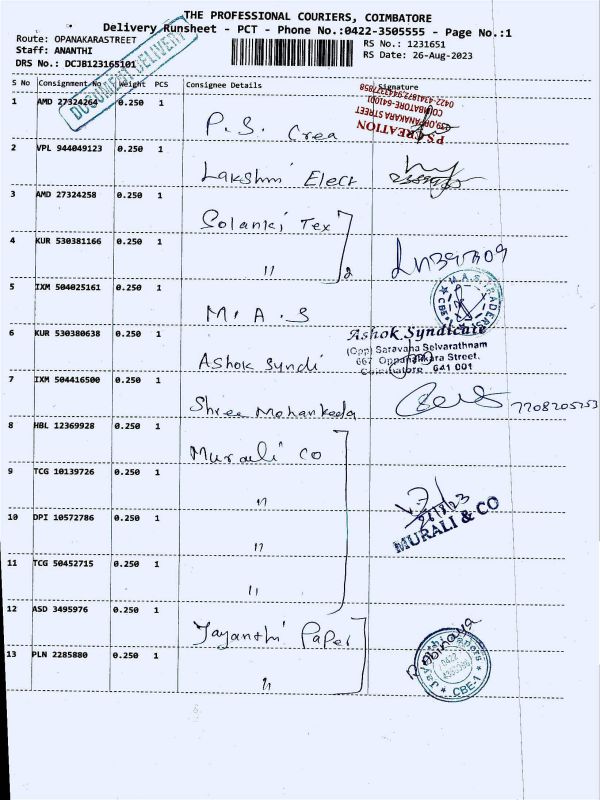 THE PROFESSIONAL COURIERS, COIMBATORE
Delivery Runsheet - PCT - Phone No.:0422-3505555 - Page No.:1
Route: OPANAKARASTREET
RS No.: 1231651
Staff: ANANTHI
RS Date: 26-Aug-2023
DRS No.: DCJB123165101
DOCUMENT DELIVERY
S No Consignment No Weight PCS Consignee Details Signature
1 AMD 27324264 0.250 1 P.S. Crea
PS CREATION
COIMBATORE-641001
2 VPL 944049123 0.250 1 Lakshmi Elect
3 AMD 27324258 0.250 1 Solanki Tex
4 KUR 530381166 0.250 1 " 2
5 IXM 504025161 0.250 1 M.A.S
M.A.S. TRADERS CBE
6 KUR 530380638 0.250 1 Ashok Syndi
Ashok Syndicate
(Opp) Saravana Selvarathnam
667 Oppanakkara Street,
Coimbatore 641 001
7 IXM 504416500 0.250 1 Shree Mohankeda
7708205753
8 HBL 12369928 0.250 1 Murali Co
9 TCG 10139726 0.250 1 "
10 DPI 10572786 0.250 1 "
MURALI & CO
11 TCG 50452715 0.250 1 "
12 ASD 3495976 0.250 1 Jayanthi Paper
13 PLN 2285880 0.250 1 "
Jayanthi Papers
0422
CBE-1